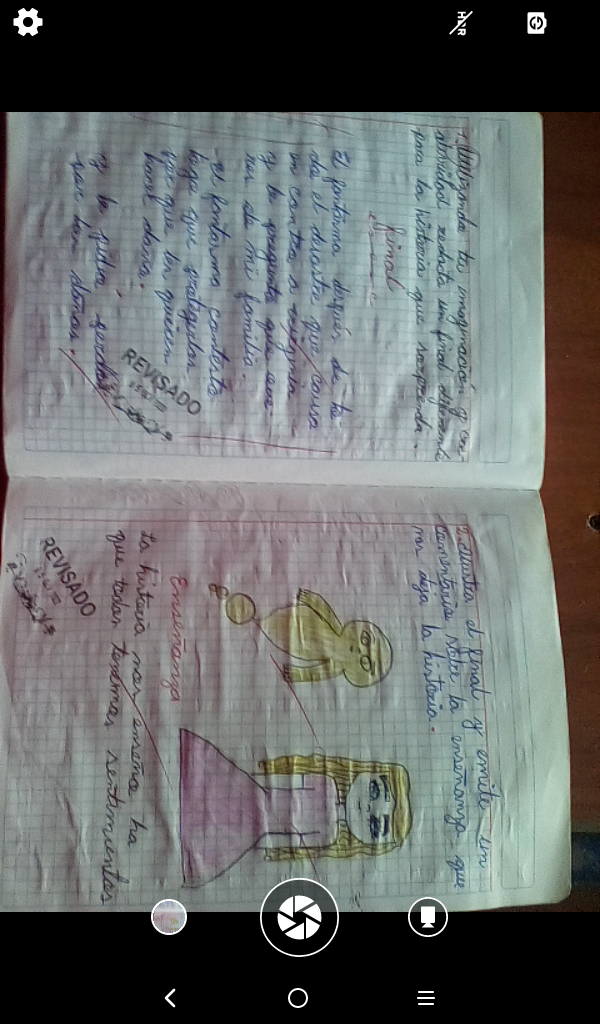 1. Utilizando tu imaginación y cre-
atividad redacta un final diferente
para la historia que sorprenda.
Final
El fantasma después de to-
do el desastre que causa
encontra a virginia
y le pregunta que eres
de mi familia.
el fantasma contesta
tengo que protegerlos
que les quieren
hacer daños.
y le pidió perdón
por los daños.
REVISADO
2. Ilustra el final y emite un
comentario sobre la enseñanza que
nos deja la historia.
Enseñanza
La historia nos enseña ha
que todos tenemos sentimientos
REVISADO
HDR